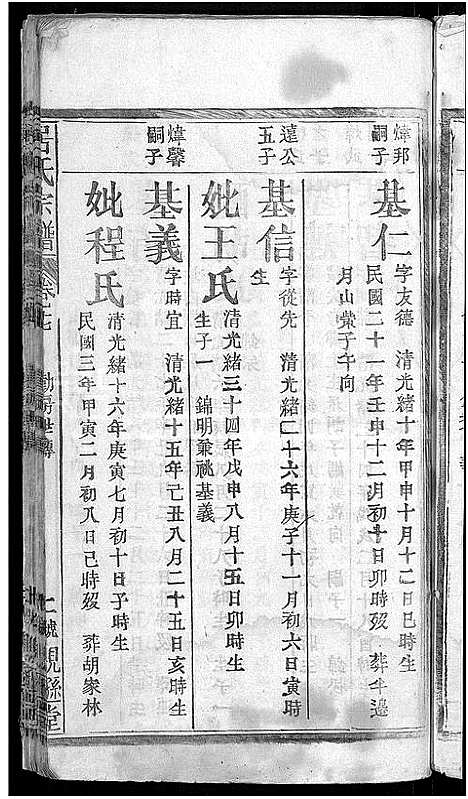 煒邦
嗣子
基仁
字友德 清光緒十年甲申十月十二日巳時生
民國二十一年壬申十二月初十日卯時歿 葬半邊
月山棠子午向
達公
五子
基信
字從先 清光緒二十六年庚子十一月初六日寅時
生
妣王氏
清光緒三十四年戊申八月十五日卯時生
生子一 錦明兼祧基義
煒馨
嗣子
基義
字時宜 清光緒十五年己丑八月二十五日亥時生
妣程氏
清光緒十六年庚寅七月初十日子時生
民國三年甲寅二月初八日巳時歿 葬胡家林
呂氏宗譜